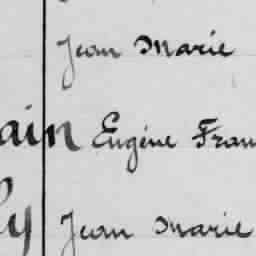 Jean Marie
ain Eugène Fran
y Jean Marie